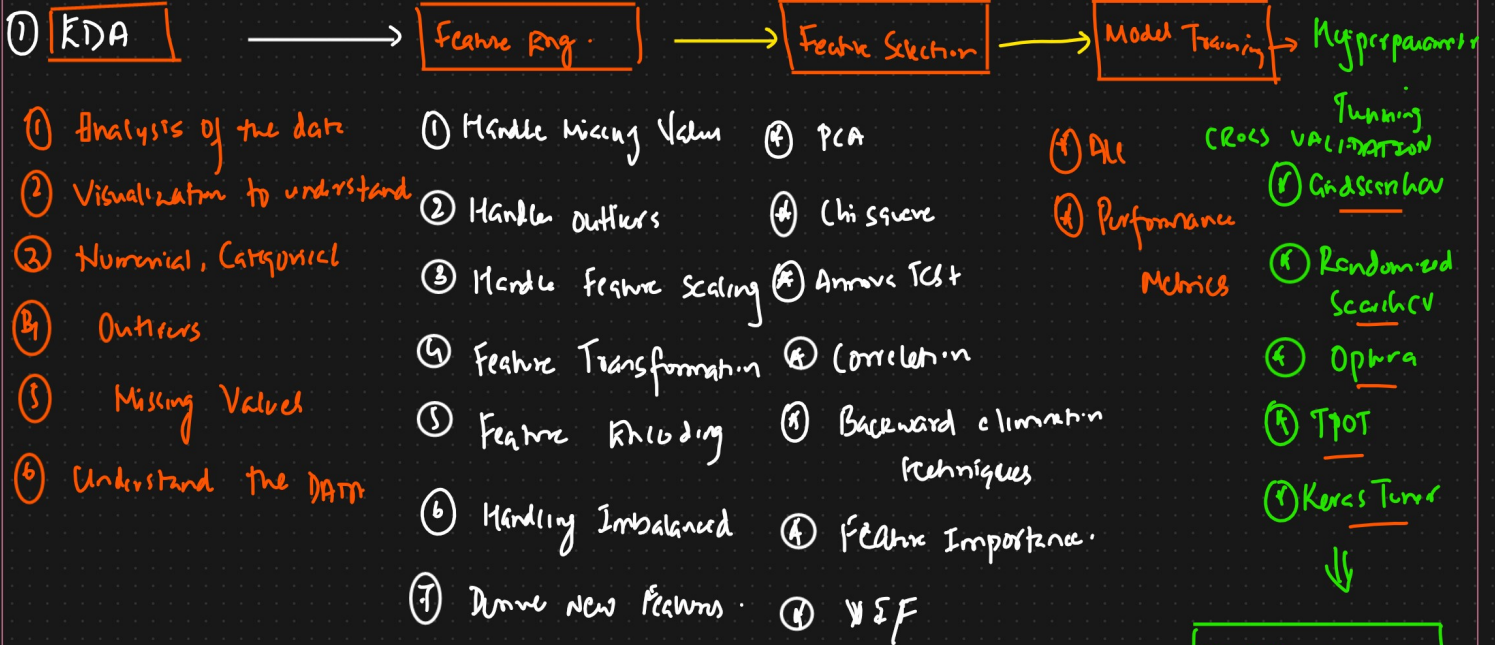 ① EDA → Feature Eng. → Feature Selection → Model Training → Hyperparameter
Tunning
① Analysis of the data
② Visualization to understand
③ Numerical, Categorical
④ Outliers
⑤ Missing Values
⑥ Understand the DATA
① Handle Missing Values
② Handle Outliers
③ Handle Feature Scaling
④ Feature Transformation
⑤ Feature Encoding
⑥ Handling Imbalanced
⑦ Derive New Features.
PCA
Chi square
Annova Test
Correlation
Backward elimination
techniques
Feature Importance.
VIF
All
Performance
Metrics
CROSS VALIDATION
GridsearchCV
Randomized
SearchCV
Optuna
TPOT
Keras Tuner